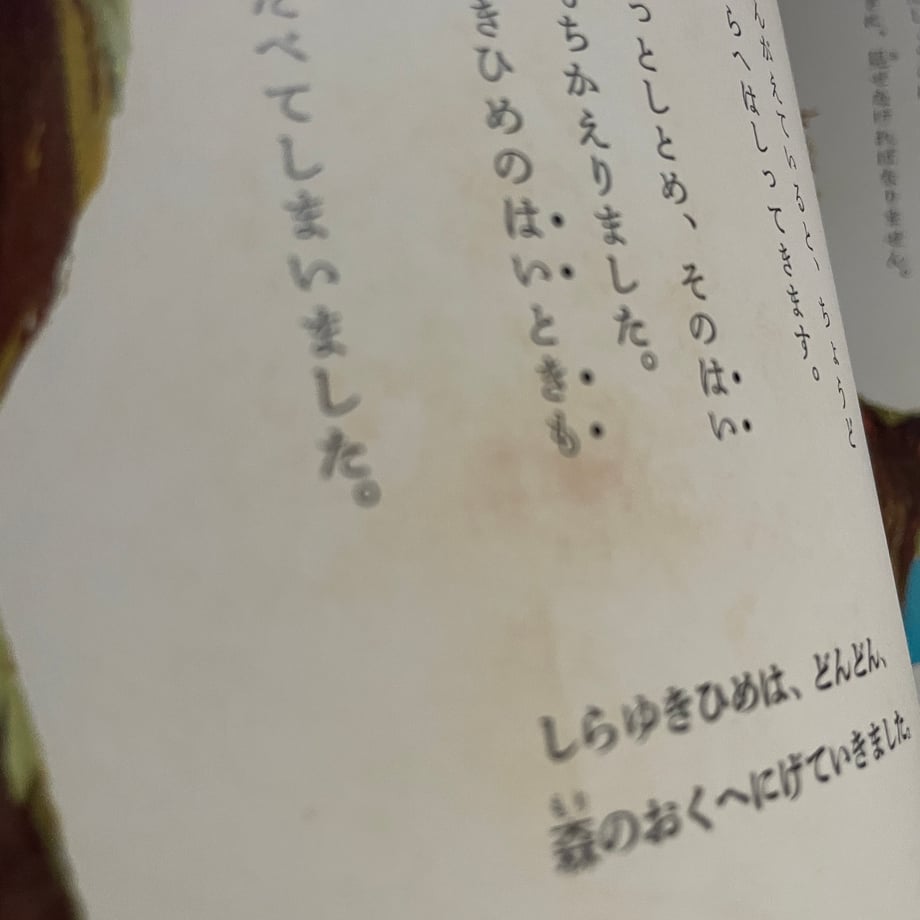 んがえていると、ちょうど
らへはしってきます。
っとしとめ、そのはい
ちかえりました。
きひめのはいときも
たべてしまいました。
しらゆきひめは、どんどん、
森のおくへにげていきました。